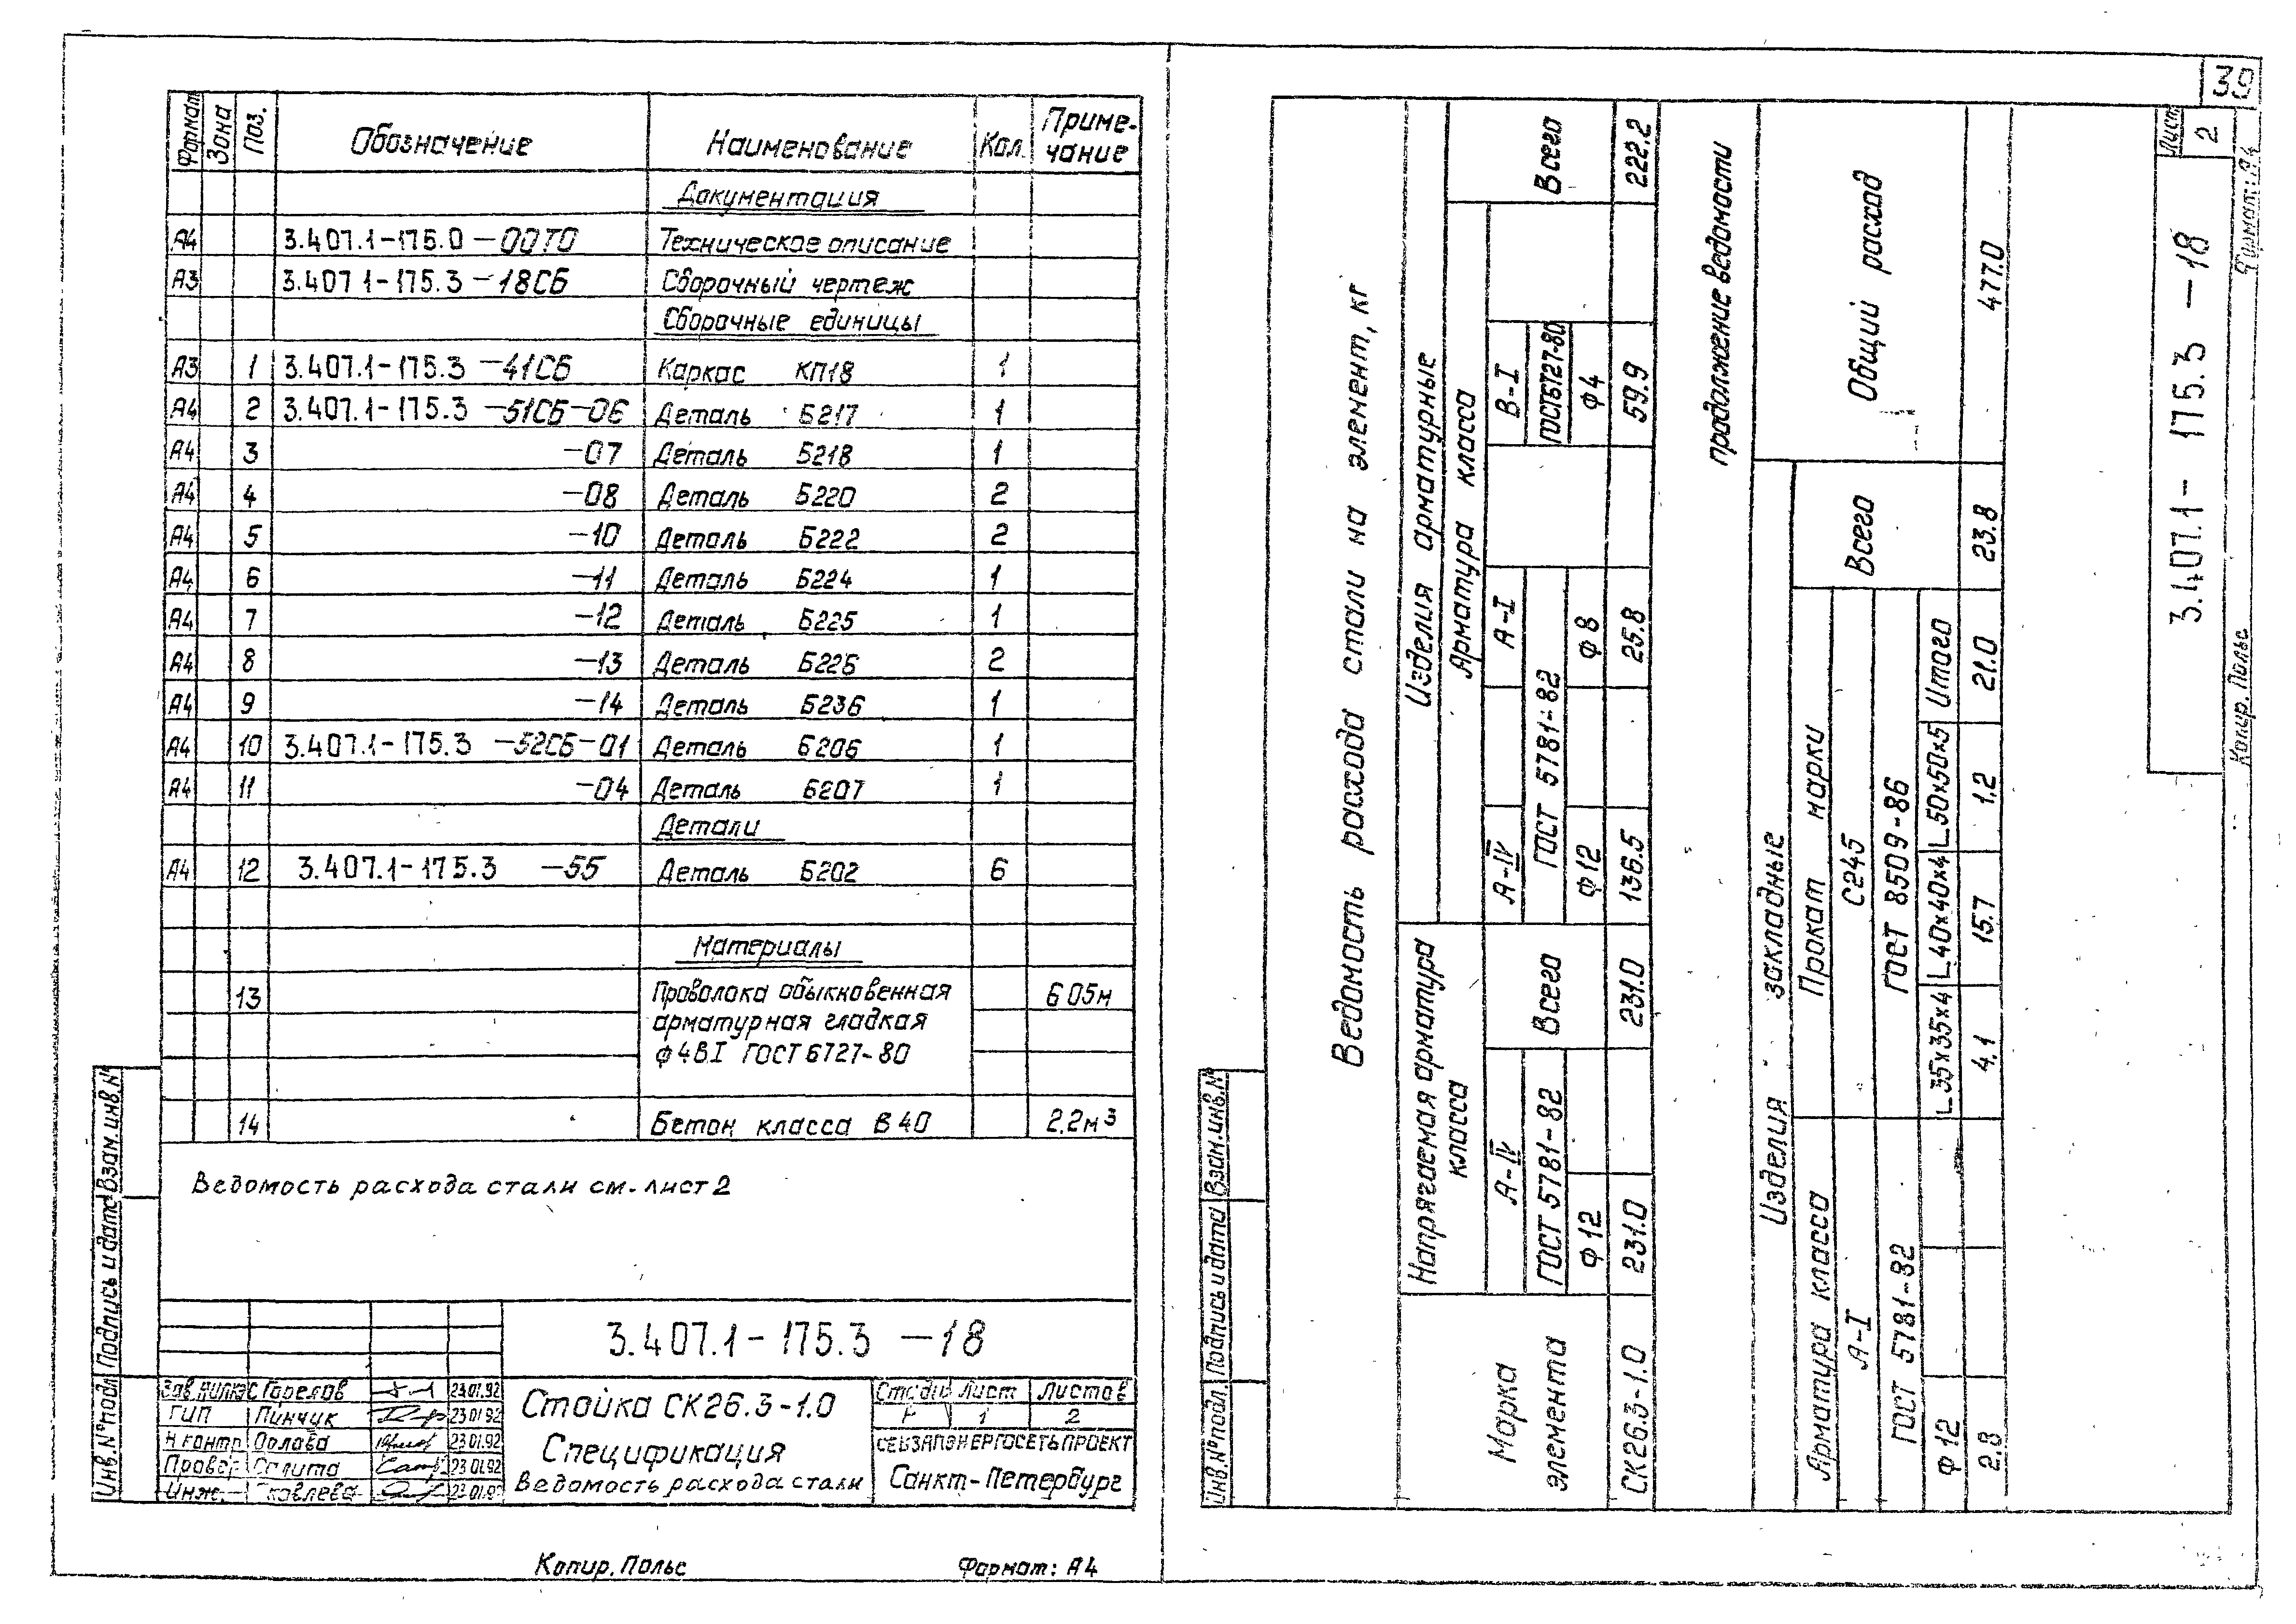 39
Формат Зона Поз. Обозначение Наименование Кол. Приме-
чание
Документация
А4 3.407.1-175.0-00ТО Техническое описание
А3 3.407.1-175.3-18СБ Сборочный чертеж
Сборочные единицы
А3 1 3.407.1-175.3-41СБ Каркас КП18 1
А4 2 3.407.1-175.3-51СБ-06 Деталь Б217 1
А4 3 -07 Деталь Б218 1
А4 4 -08 Деталь Б220 2
А4 5 -10 Деталь Б222 2
А4 6 -11 Деталь Б224 1
А4 7 -12 Деталь Б225 1
А4 8 -13 Деталь Б226 2
А4 9 -14 Деталь Б236 1
А4 10 3.407.1-175.3 -52СБ-01 Деталь Б206 1
А4 11 -04 Деталь Б207 1
Детали
А4 12 3.407.1-175.3 -55 Деталь Б202 6
Материалы
13 Проволока обыкновенная 605м
арматурная гладкая
ф4ВI ГОСТ 6727-80
14 Бетон класса В40 2.2м³
Ведомость расхода стали см. лист 2
Инв.№подл. Подпись и дата Взам.инв.№
3.407.1-175.3 -18
Горелов 23.01.92
ГИП Пинчук 23.01.92
Н.контр. Орлова 23.01.92
Провер. Салита 23.01.92
Инж. Яковлева 23.01.92
Стойка СК26.3-1.0
Спецификация
Ведомость расхода стали
Стадия Лист Листов
1 2
СЕВЗАПЭНЕРГОСЕТЬПРОЕКТ
Санкт-Петербург
Копир. Польс Формат: А4
Инв.№подл. Подпись и дата Взам.инв.№
Ведомость расхода стали на элемент, кг
Марка
элемента
Напрягаемая арматура
класса
Изделия арматурные
Арматура класса
А-IV Всего А-IV А-I В-I Всего
ГОСТ 5781-82 ГОСТ 5781-82 ГОСТ 6727-80
Ф12 Ф12 Ф8 Ф4
СК26.3-1.0 231.0 231.0 136.5 25.8 59.9 222.2
продолжение ведомости
Изделия закладные
Общий расход
Арматура класса Прокат марки Всего
А-I С245
ГОСТ 5781-82 ГОСТ 8509-86
Ф12 ∟35×35×4 ∟40×40×4 ∟50×50×5 Итого
2.8 4.1 15.7 1.2 21.0 23.8 477.0
3.407.1-175.3 -18
Лист
2
Копир. Польс Формат: А4